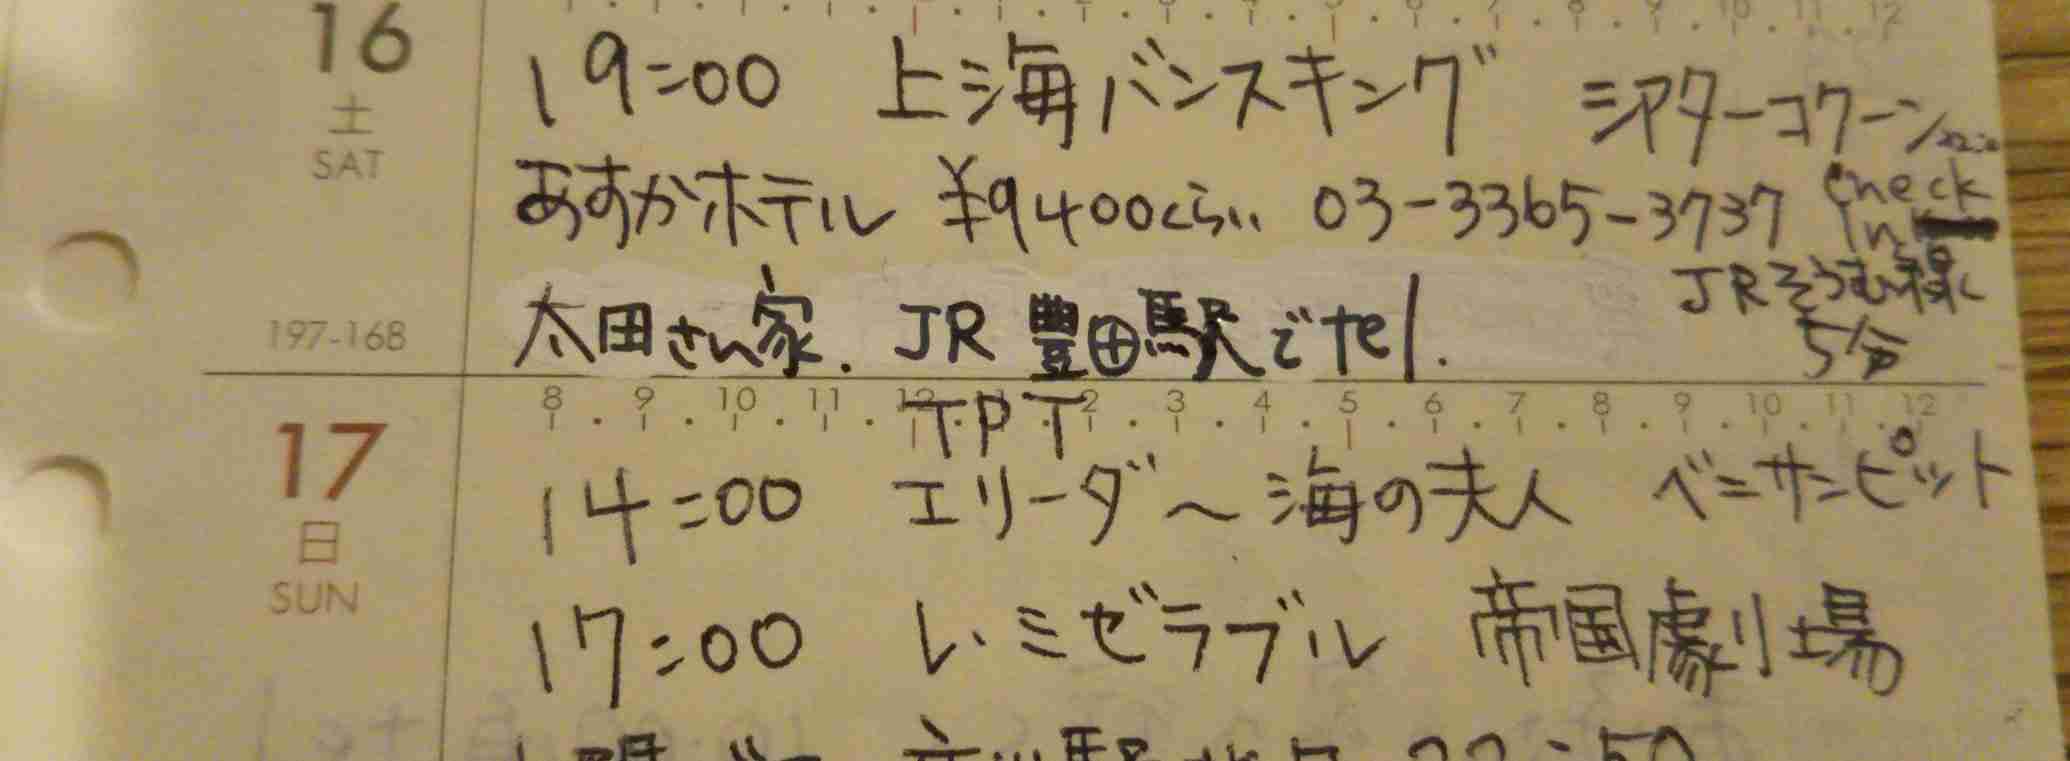 16
土
SAT
197-168
19:00 上海バンスキング シアターコクーン
あすかホテル ¥9400くらい 03-3365-3737 Check In
JRそうぶ線
5分
太田さん家. JR 豊田駅でtel.
8 9 10 11 12 1 2 3 4 5 6 7 8 9 10 11 12
17
日
SUN
TPT
14:00 エリーダ〜海の夫人 ベニサンピット
17:00 レ・ミゼラブル 帝国劇場
22:50